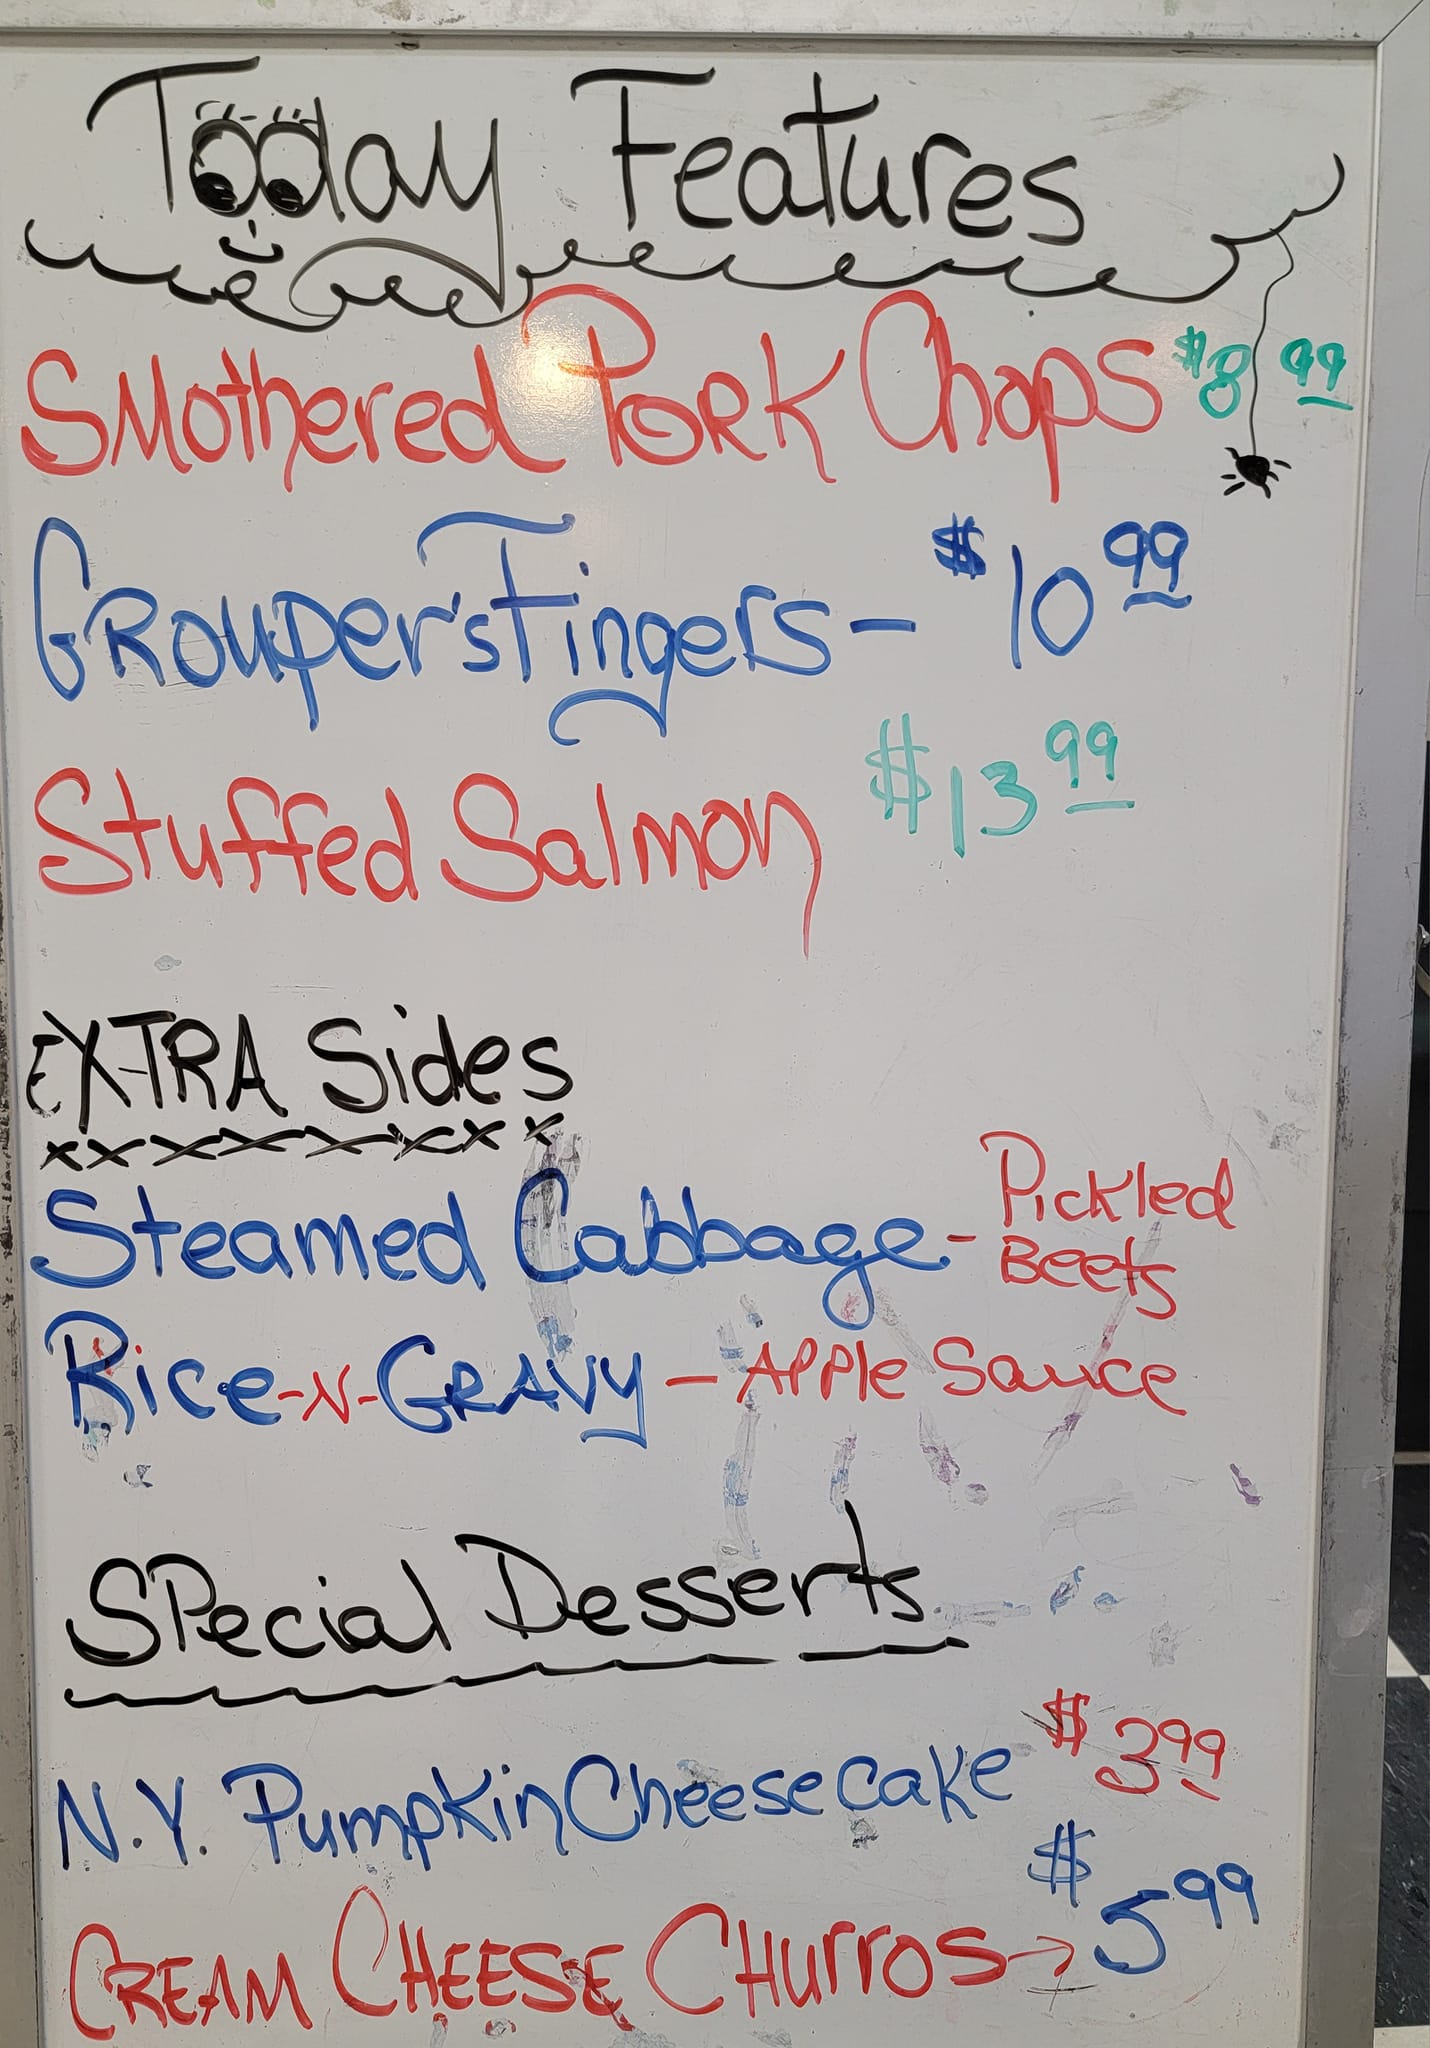 Today Features
Smothered Pork Chops $8 99
Grouper's Fingers - $10 99
Stuffed Salmon $13 99
EXTRA Sides
xxxxxxxx
Steamed Cabbage - Pickled Beets
Rice-N-GRAVY - Apple Sauce
Special Desserts
N.Y. Pumpkin Cheesecake $3 99
CREAM CHEESE CHurros → $5 99